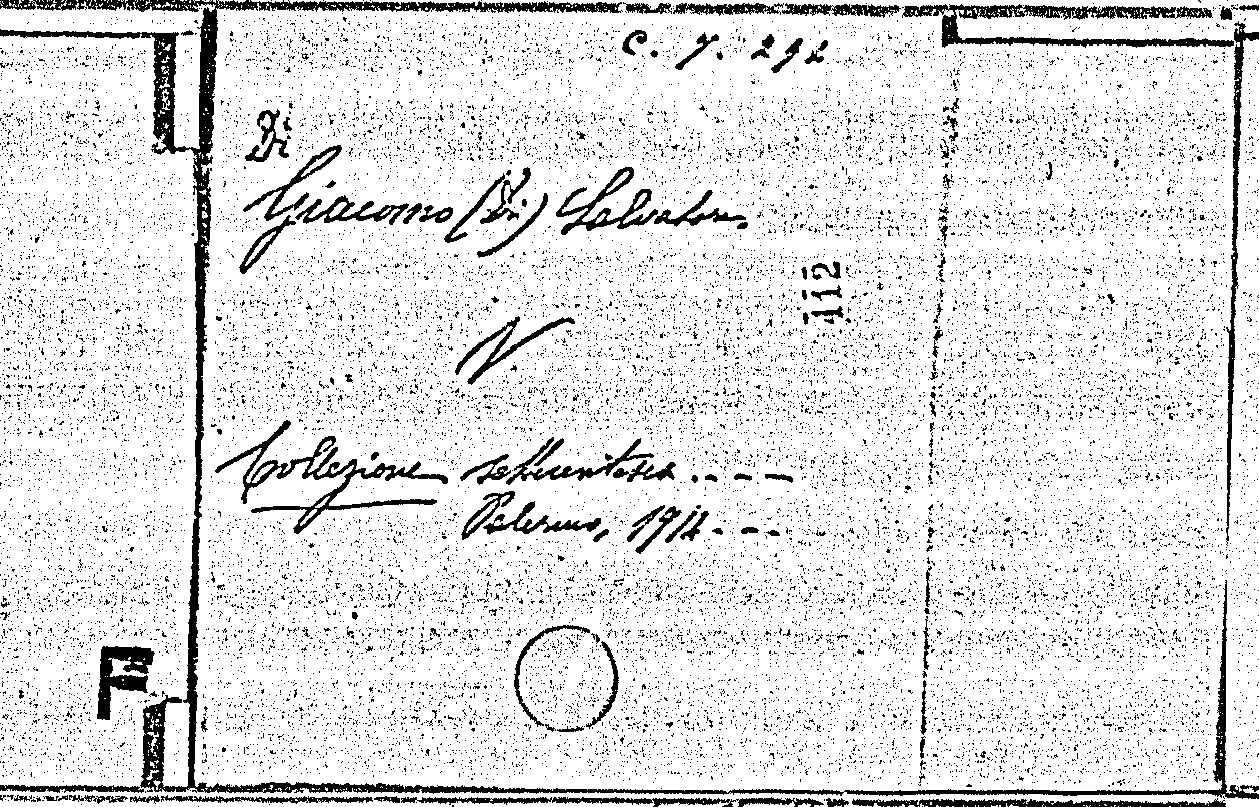 C. 7. 292
Di
Giacomo (Di) Salvatore.
V
Collezione settecentesca . - - -
Palermo, 1914 - - -
112